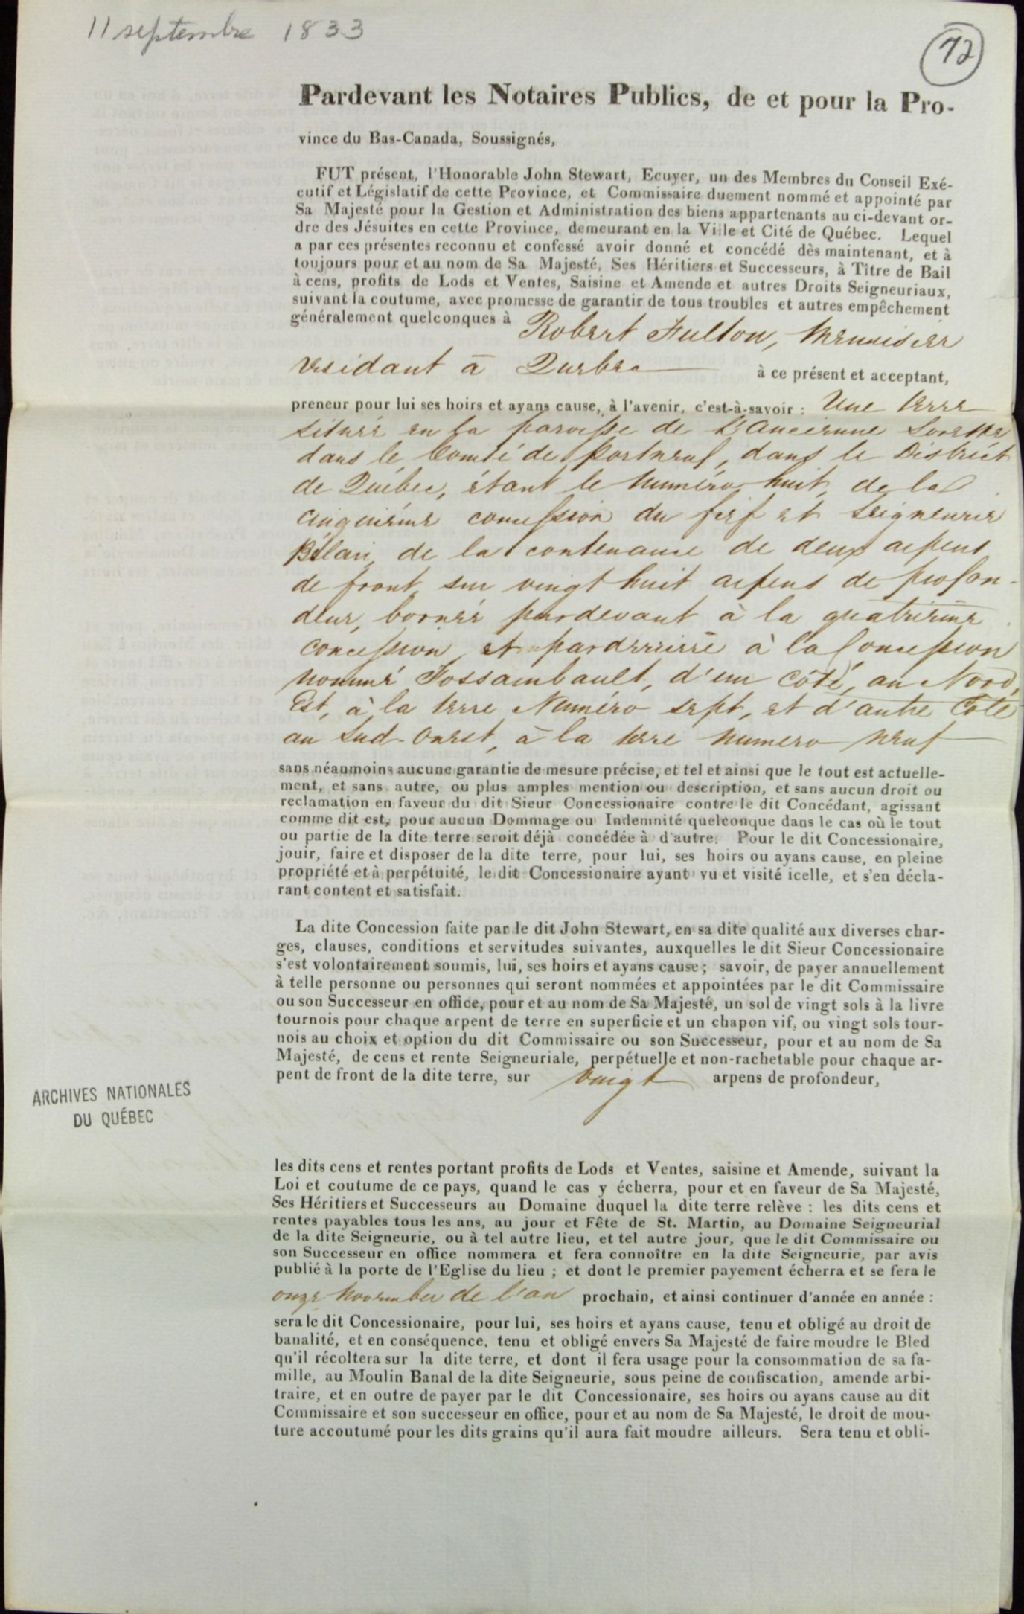 11 septembre 1833
72
Pardevant les Notaires Publics, de et pour la Pro-
vince du Bas-Canada, Soussignés,
FUT présent, l'Honorable John Stewart, Ecuyer, un des Membres du Conseil Exé-
cutif et Législatif de cette Province, et Commissaire duement nommé et appointé par
Sa Majesté pour la Gestion et Administration des biens appartenants au ci-devant or-
dre des Jésuites en cette Province, demeurant en la Ville et Cité de Québec. Lequel
a par ces présentes reconnu et confessé avoir donné et concédé dès maintenant, et à
toujours pour et au nom de Sa Majesté, Ses Héritiers et Successeurs, à Titre de Bail
à cens, profits de Lods et Ventes, Saisine et Amende et autres Droits Seigneuriaux,
suivant la coutume, avec promesse de garantir de tous troubles et autres empêchement
généralement quelconques à Robert Fulton, Menuisier
residant à Quebec à ce présent et acceptant,
preneur pour lui ses hoirs et ayans cause, à l'avenir, c'est-à-savoir : Une terre
située en la paroisse de L'Ancienne Lorette
dans le Comté de Portneuf, dans le District
de Québec, étant le Numéro huit, de la
cinquième concession du fief et Seigneurie
Bélair, de la contenance de deux arpens
de front sur vingt huit arpens de profon-
deur, bornée pardevant à la quatrième
concession, et parderrière à la Concession
nommé Fossambault, d'un côté, au Nord,
Est, à la terre Numéro sept, et d'autre Côté
au Sud-Ouest, à la terre numero neuf
sans néaumoins aucune garantie de mesure précise, et tel et ainsi que le tout est actuelle-
ment, et sans autre, ou plus amples mention ou description, et sans aucun droit ou
reclamation en faveur du dit Sieur Concessionaire contre le dit Concédant, agissant
comme dit est, pour aucun Dommage ou Indemnité quelconque dans le cas où le tout
ou partie de la dite terre seroit déjà concédée à d'autre. Pour le dit Concessionaire,
jouir, faire et disposer de la dite terre, pour lui, ses hoirs ou ayans cause, en pleine
propriété et à perpétuité, le dit Concessionaire ayant vu et visité icelle, et s'en décla-
rant content et satisfait.
La dite Concession faite par le dit John Stewart, en sa dite qualité aux diverses char-
ges, clauses, conditions et servitudes suivantes, auxquelles le dit Sieur Concessionaire
s'est volontairement soumis, lui, ses hoirs et ayans cause ; savoir, de payer annuellement
à telle personne ou personnes qui seront nommées et appointées par le dit Commissaire
ou son Successeur en office, pour et au nom de Sa Majesté, un sol de vingt sols à la livre
tournois pour chaque arpent de terre en superficie et un chapon vif, ou vingt sols tour-
nois au choix et option du dit Commissaire ou son Successeur, pour et au nom de Sa
Majesté, de cens et rente Seigneuriale, perpétuelle et non-rachetable pour chaque ar-
pent de front de la dite terre, sur vingt arpens de profondeur,
ARCHIVES NATIONALES
DU QUÉBEC
les dits cens et rentes portant profits de Lods et Ventes, saisine et Amende, suivant la
Loi et coutume de ce pays, quand le cas y écherra, pour et en faveur de Sa Majesté,
Ses Héritiers et Successeurs au Domaine duquel la dite terre relève : les dits cens et
rentes payables tous les ans, au jour et Fête de St. Martin, au Domaine Seigneurial
de la dite Seigneurie, ou à tel autre lieu, et tel autre jour, que le dit Commissaire ou
son Successeur en office nommera et fera connoître en la dite Seigneurie, par avis
publié à la porte de l'Eglise du lieu ; et dont le premier payement écherra et se fera le
onze November de l'an prochain, et ainsi continuer d'année en année :
sera le dit Concessionaire, pour lui, ses hoirs et ayans cause, tenu et obligé au droit de
banalité, et en conséquence, tenu et obligé envers Sa Majesté de faire moudre le Bled
qu'il récoltera sur la dite terre, et dont il fera usage pour la consommation de sa fa-
mille, au Moulin Banal de la dite Seigneurie, sous peine de confiscation, amende arbi-
traire, et en outre de payer par le dit Concessionaire, ses hoirs ou ayans cause au dit
Commissaire et son successeur en office, pour et au nom de Sa Majesté, le droit de mou-
ture accoutumé pour les dits grains qu'il aura fait moudre ailleurs. Sera tenu et obli-